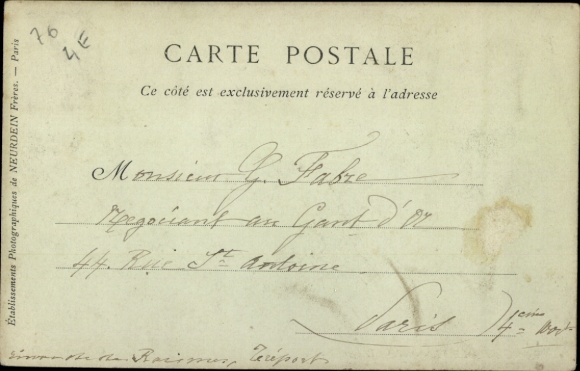 76
4E
CARTE POSTALE
Ce côté est exclusivement réservé à l'adresse
Monsieur G. Fabre
Negociant au Gant d'Or
44. Rue St Antoine
Paris 4eme
de Racinmes, Tréport
Établissements Photographiques de NEURDEIN Frères. — Paris